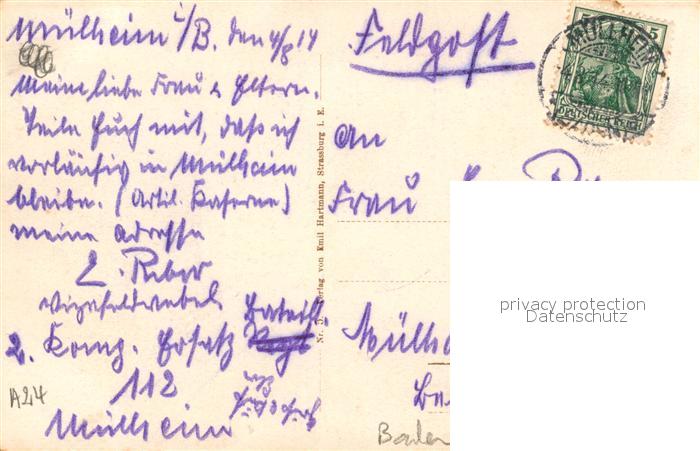 Müllheim i/B. den 4/8 14
Meine liebe Frau & Eltern.
Teile Euch mit, daß ich
vorläufig in Müllheim
bleibe. (Artil. Kaserne)
meine Adresse
E. Reber
Vizefeldwebel
2. Komp. Ersatz Bataill.
112
Müllheim
A24
Nr. Verlag von Emil Hartmann, Strassburg i. E.
Feldpost
MÜLLHEIM
5
Deutsches Reich
An
Frau
Müllh
Ba
Baden
privacy protection
Datenschutz